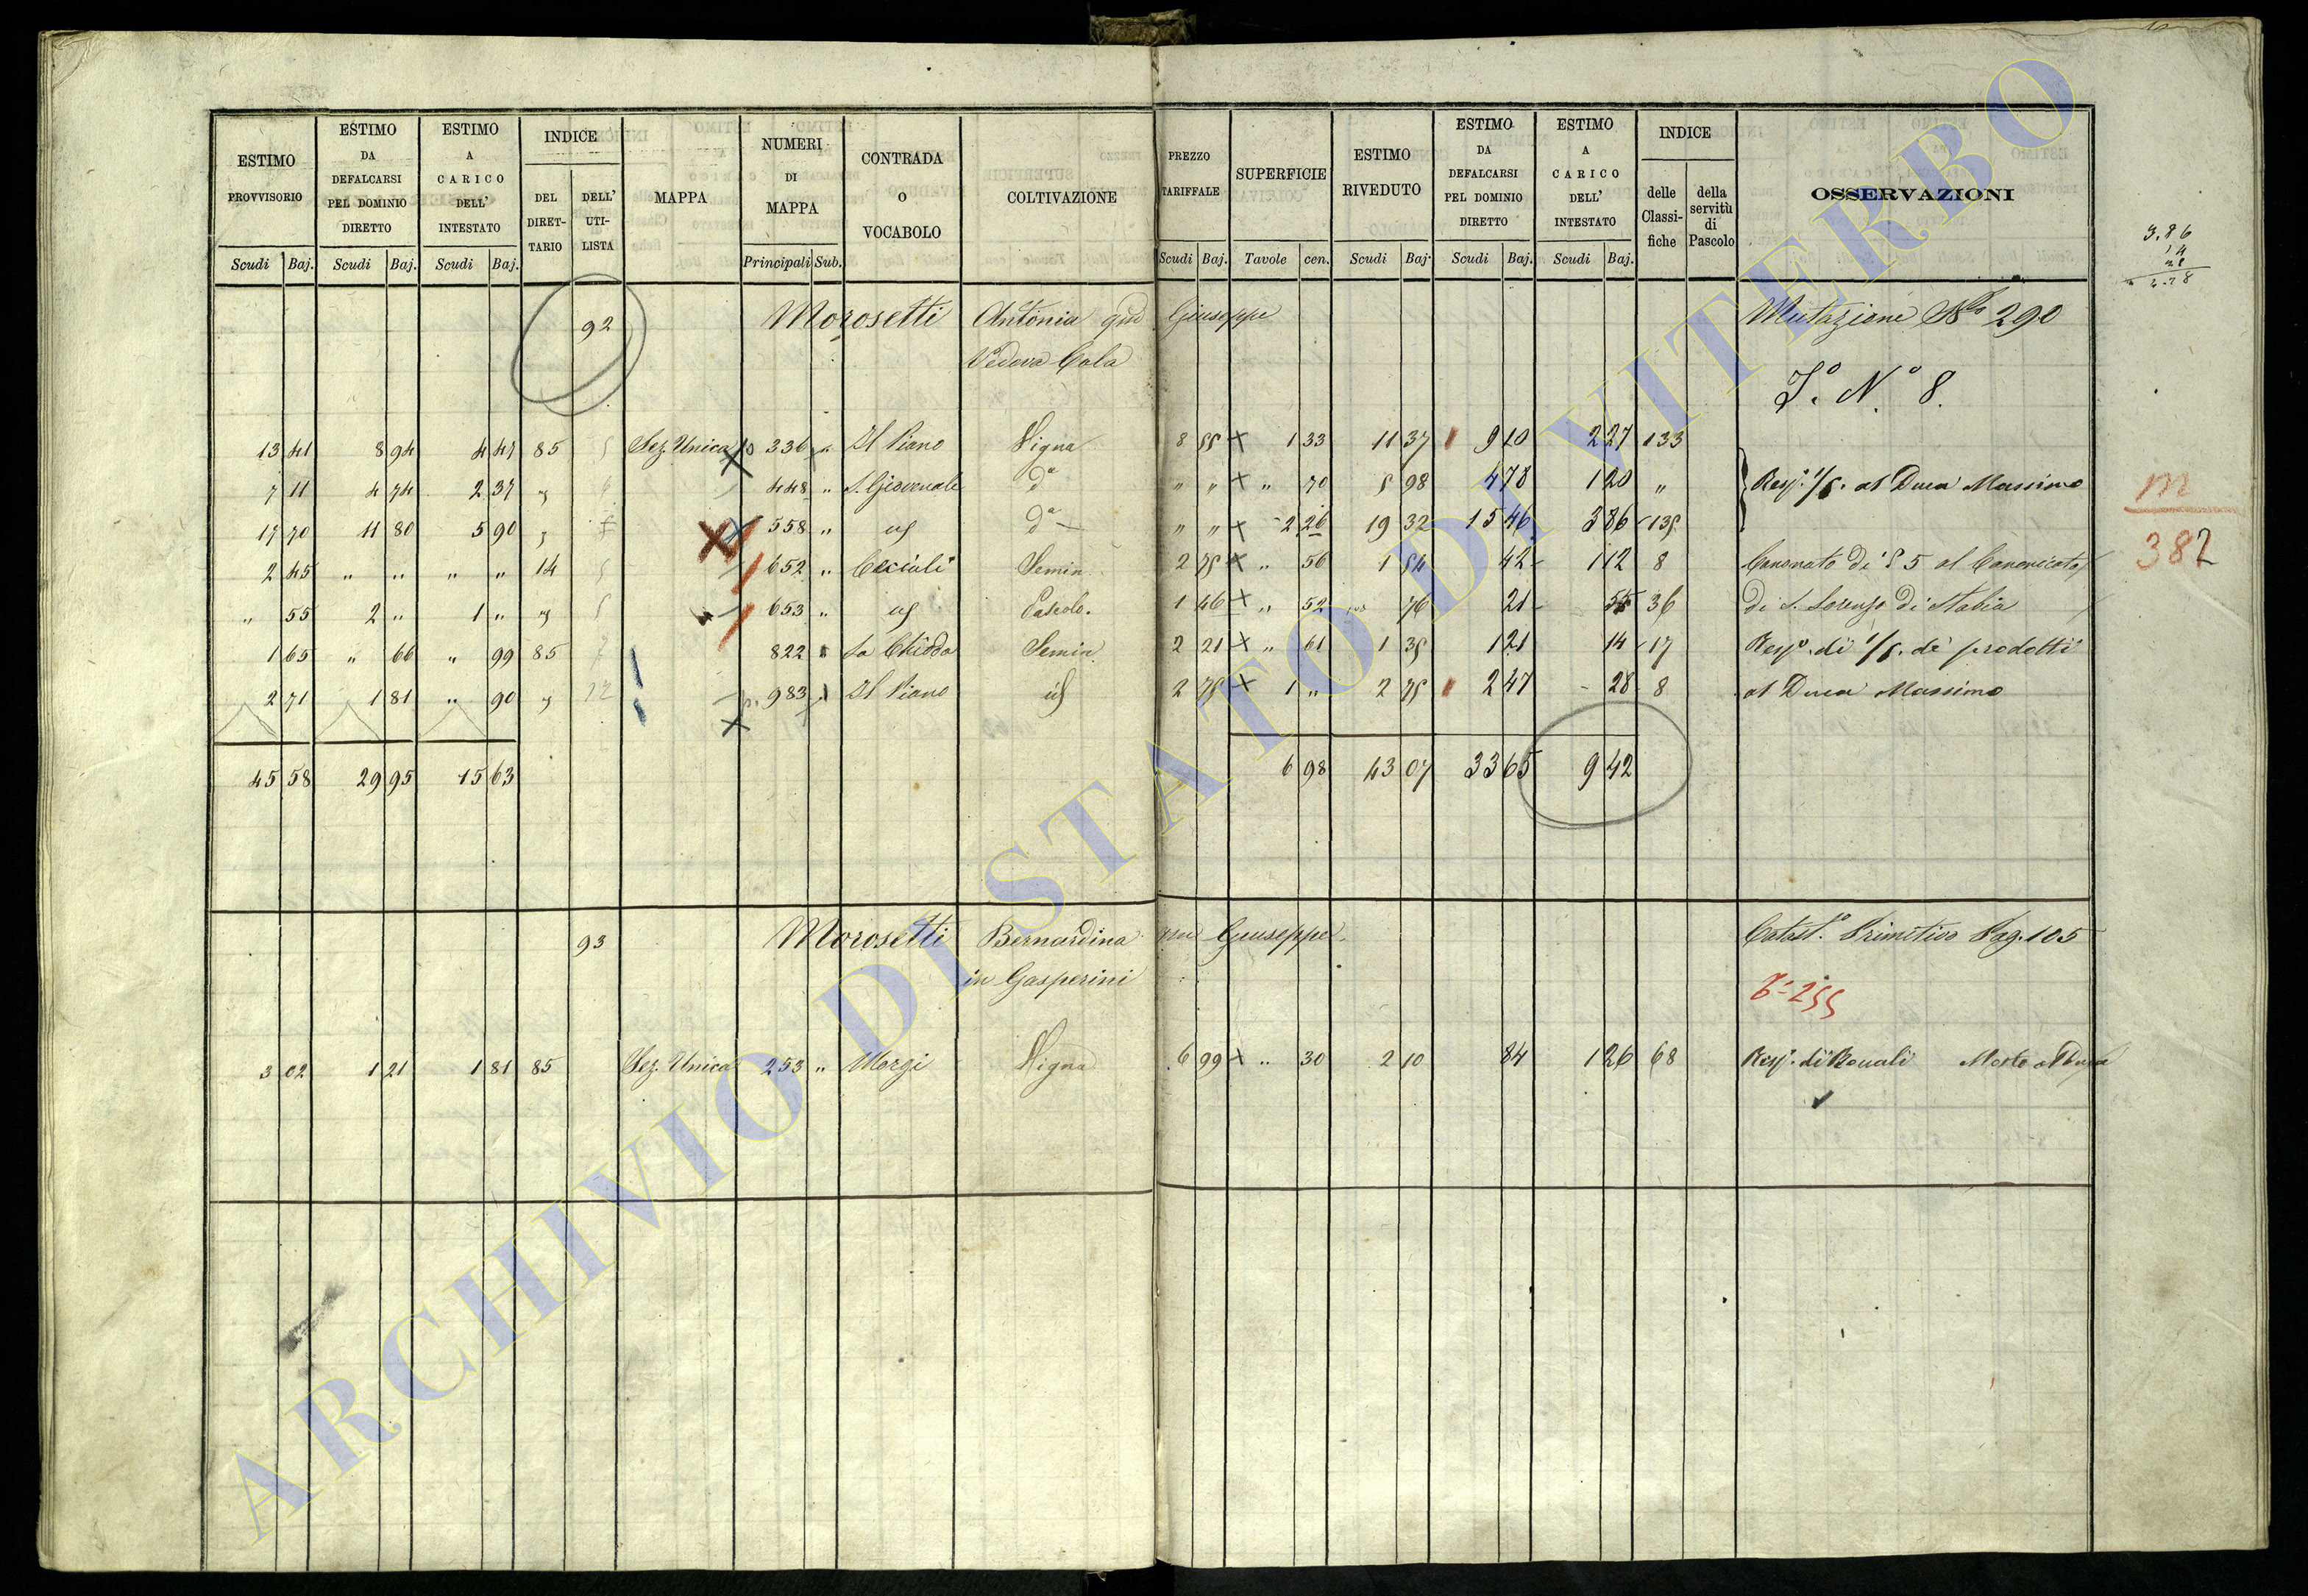 ESTIMO PROVVISORIO | ESTIMO DA DEFALCARSI PEL DOMINIO DIRETTO | ESTIMO A CARICO DELL' INTESTATO | INDICE DEL DIRET-TARIO | DELL' UTI-LISTA | MAPPA | NUMERI DI MAPPA | CONTRADA O VOCABOLO | COLTIVAZIONE | PREZZO TARIFFALE | SUPERFICIE | ESTIMO RIVEDUTO | ESTIMO DA DEFALCARSI PEL DOMINIO DIRETTO | ESTIMO A CARICO DELL' INTESTATO | INDICE delle Classi-fiche | della servitù di Pascolo | OSSERVAZIONI
Scudi Baj. Scudi Baj. Scudi Baj. Principali Sub. Scudi Baj. Tavole cen. Scudi Baj. Scudi Baj. Scudi Baj.
92 Morosetti Antonia qm Giuseppe Mutazione 290
Vedova Cola
N.º 8.
13 41 8 94 4 47 85 Sez. Unica 336 " Il Piano Vigna 8 55 1 33 11 37 9 10 2 27 133
7 11 4 74 2 37 " 448 " S. Giovenale dª " " " 70 5 98 4 78 1 20 " Resp. 1/5. al Duca Massimo
17 70 11 80 5 90 558 " dª " " 2 26 19 32 15 46 3 86 135
2 45 " " " " 14 652 " Semin 2 75 " 56 1 54 42 1 12 8 Canonato di S 5 al Canonicato
" 55 2 " 1 " 653 " Pascolo. 1 46 " 52 76 21 55 36 di S. Lorenzo di Stabia
1 65 " 66 " 99 85 822 La Chiodo Semin 2 21 " 61 1 35 1 21 14 17 Resp. di 1/5. de prodotti
2 71 1 81 " 90 983 Il Piano 2 75 1 " 2 75 2 47 28 8 al Duca Massimo
45 58 29 95 15 63 6 98 43 07 33 65 9 42
93 Morosetti Bernardina qm Giuseppe. Catast.º Primitivo Pag. 105
in Gasperini
255
3 02 1 21 1 81 85 Sez. Unica 253 " Morgi Vigna 6 99 " 30 2 10 84 1 26 68 Resp. di Mosto al Duca
3.86
14
28
m
382
ARCHIVIO DI STATO DI VITERBO